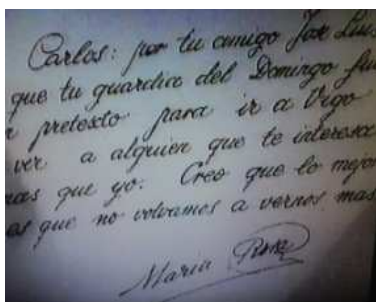 Carlos: por tu amigo Jose Luis
que tu guardia del Domingo fue
pretexto para ir a Vigo
ver a alguien que te interesa
mas que yo. Creo que lo mejor
es que no volvamos a vernos mas
Maria Rosa